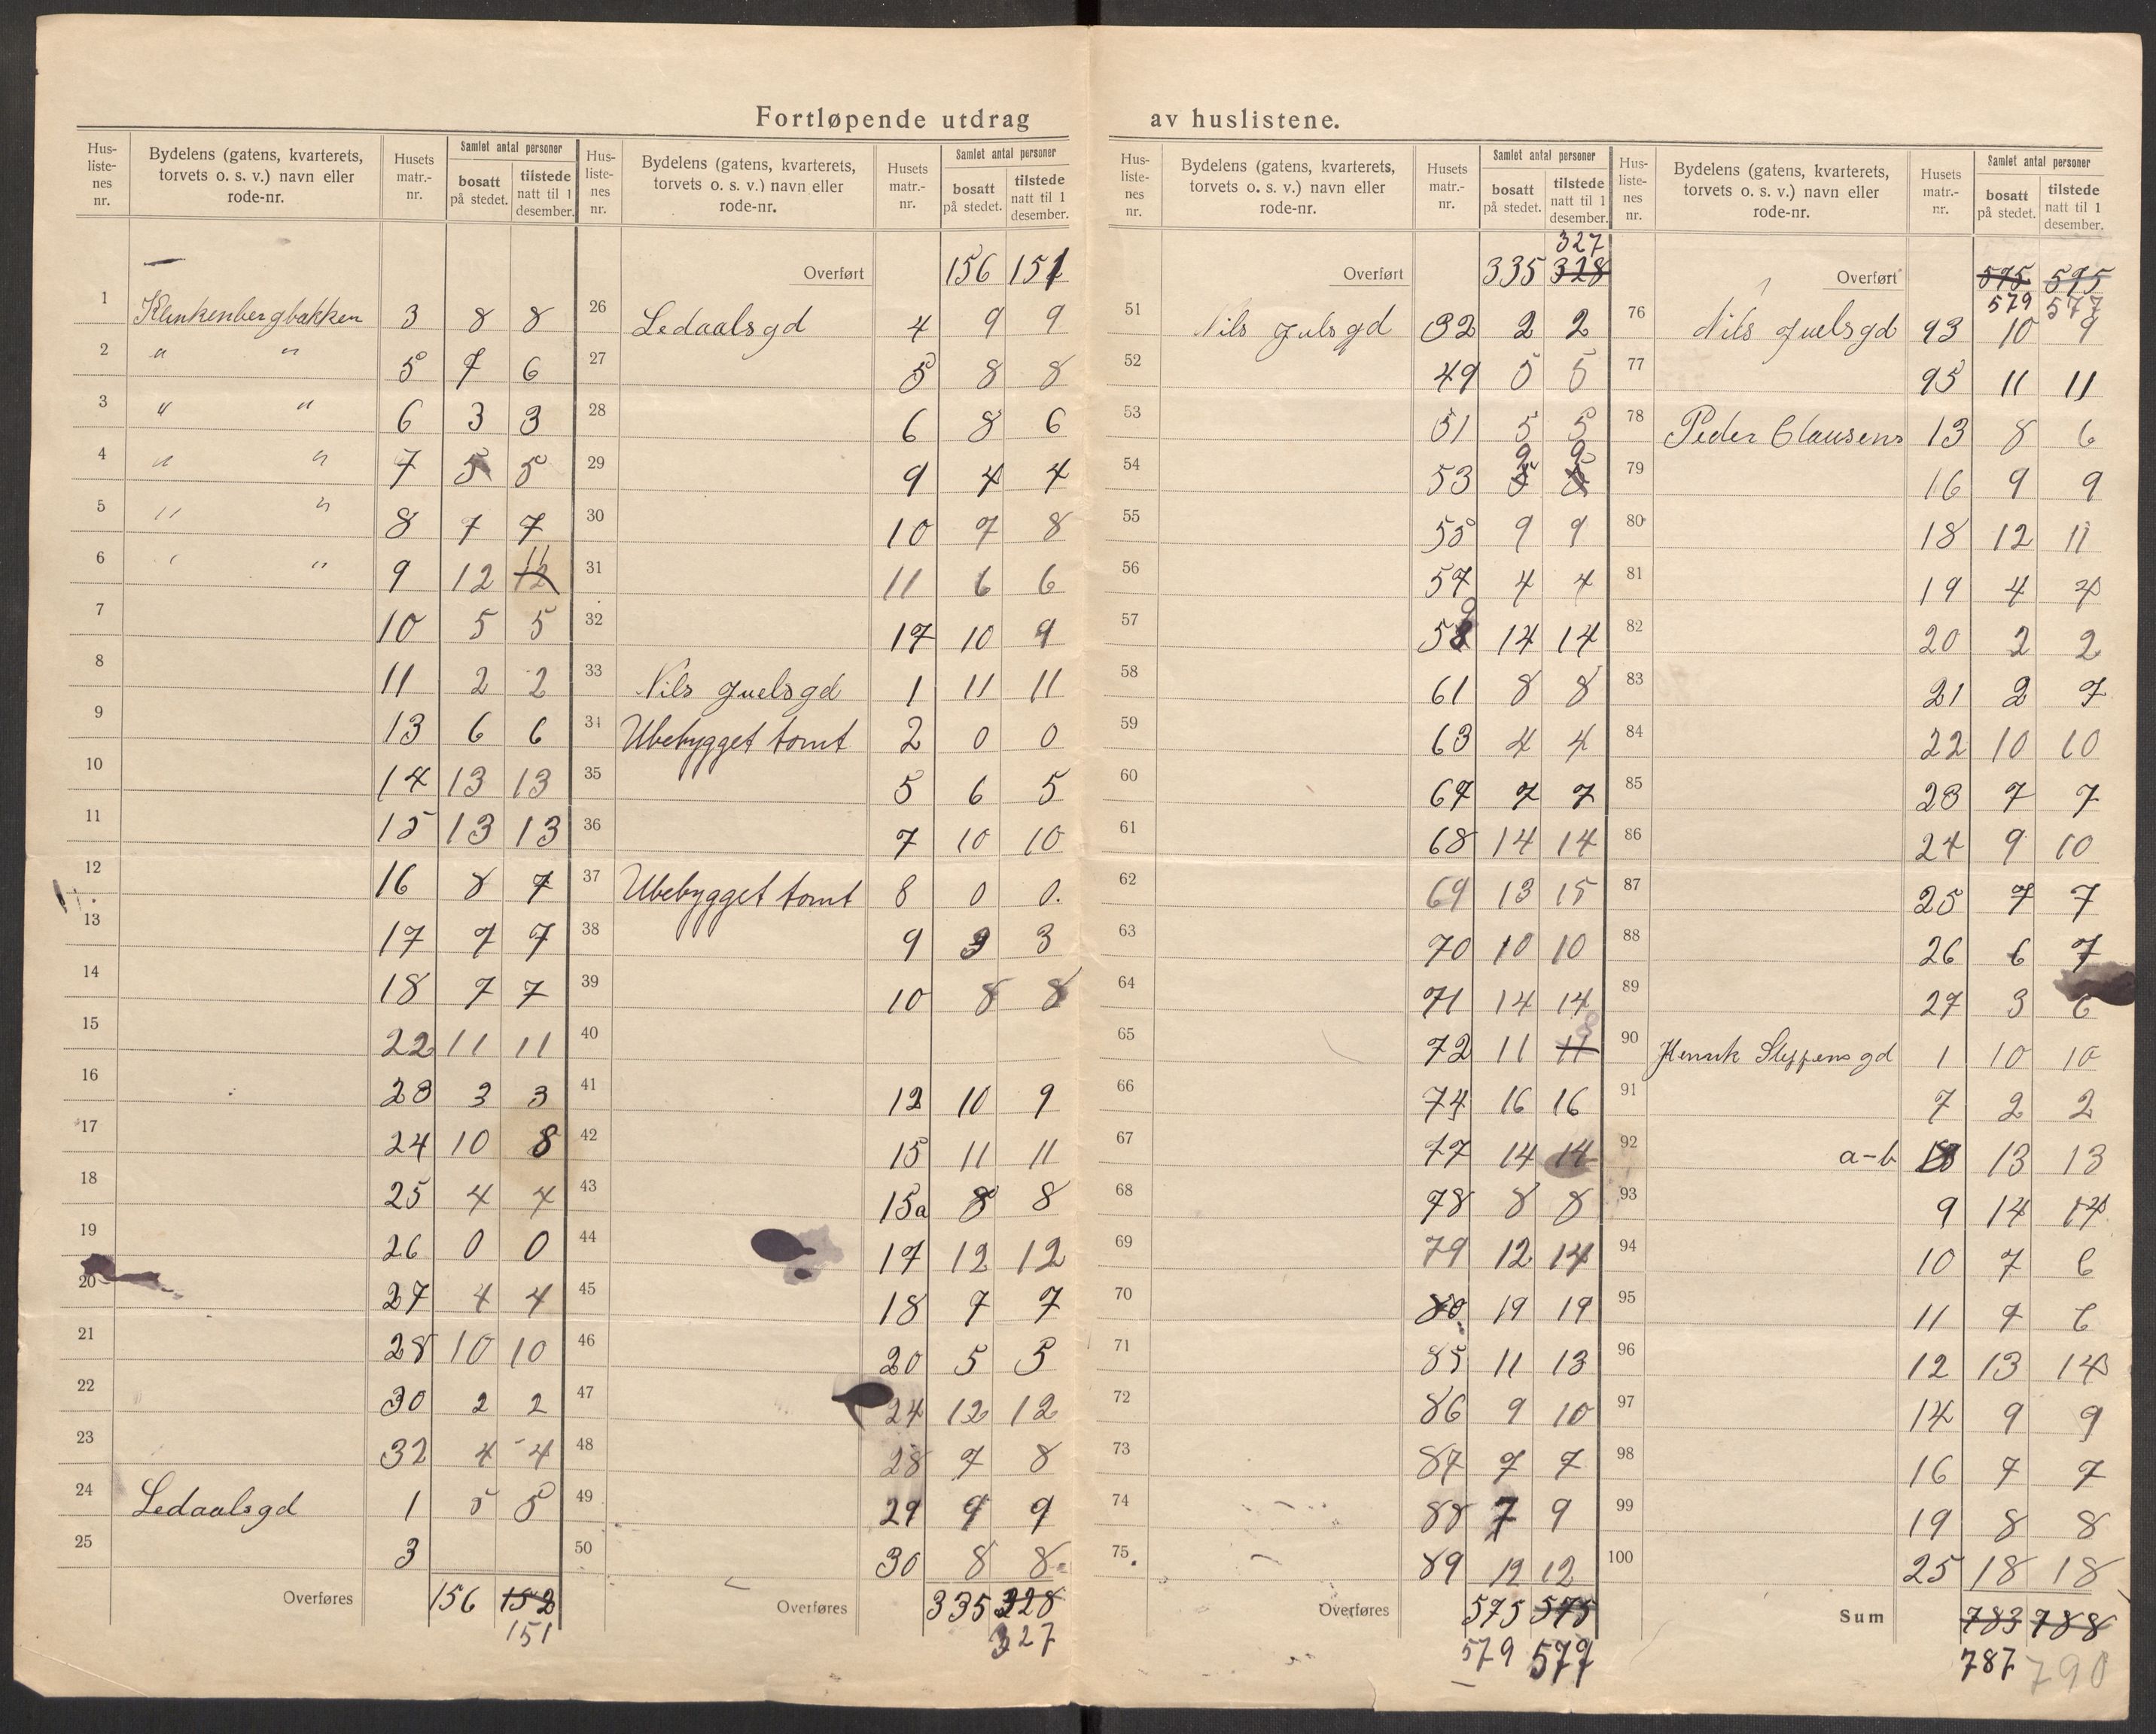 Fortløpende utdrag av huslistene.
Hus-liste-nes nr. | Bydelens (gatens, kvarterets, torvets o. s. v.) navn eller rode-nr. | Husets matr.-nr. | Samlet antal personer | bosatt på stedet. | tilstede natt til 1 desember.
1 Klinkenbergbakken 3 8 8
2 " " 5 7 6
3 " " 6 3 3
4 " " 7 5 5
5 " " 8 7 7
6 " " 9 12 12 11
7 10 5 5
8 11 2 2
9 13 6 6
10 14 13 13
11 15 13 13
12 16 8 7
13 17 7 7
14 18 7 7
15 22 11 11
16 23 3 3
17 24 10 8
18 25 4 4
19 26 0 0
20 27 4 4
21 28 10 10
22 30 2 2
23 32 4 4
24 Ledaalsgd 1 5 5
25 3
Overføres 156 152
151
Hus-liste-nes nr. | Bydelens (gatens, kvarterets, torvets o. s. v.) navn eller rode-nr. | Husets matr.-nr. | Samlet antal personer | bosatt på stedet. | tilstede natt til 1 desember.
Overført 156 151
26 Ledaalsgd 4 9 9
27 5 8 8
28 6 8 6
29 9 4 4
30 10 7 8
31 11 6 6
32 17 10 9
33 Nils Juelsgd 1 11 11
34 Ubebygget tomt 2 0 0
35 5 6 5
36 7 10 10
37 Ubebygget tomt 8 0 0.
38 9 3 3
39 10 8 8
40
41 12 10 9
42 15 11 11
43 15a 8 8
44 17 12 12
45 18 7 7
46 20 5 5
47 24 12 12
48 28 7 8
49 29 9 9
50 30 8 8
Overføres 335 328
327
Hus-liste-nes nr. | Bydelens (gatens, kvarterets, torvets o. s. v.) navn eller rode-nr. | Husets matr.-nr. | Samlet antal personer | bosatt på stedet. | tilstede natt til 1 desember.
327
Overført 335 328
51 Nils Julsgd 32 2 2
52 49 5 5
53 51 5 5
9 9
54 53 5 5
55 55 9 9
56 57 4 4
57 59 14 14
58 61 8 8
59 63 4 4
60 67 7 7
61 68 14 14
62 69 13 15
63 70 10 10
64 71 14 14
65 72 11 11 8
66 74 16 16
67 77 14 14
68 78 8 8
69 79 12 14
70 80 19 19
71 85 11 13
72 86 9 10
73 87 7 7
74 88 7 9
75 89 12 12
Overføres 575 575
579 577
Hus-liste-nes nr. | Bydelens (gatens, kvarterets, torvets o. s. v.) navn eller rode-nr. | Husets matr.-nr. | Samlet antal personer | bosatt på stedet. | tilstede natt til 1 desember.
Overført 575 575
579 577
76 Nils Juelsgd 93 10 9
77 95 11 11
78 Peder Clausens 13 8 6
79 16 9 9
80 18 12 11
81 19 4 4
82 20 2 2
83 21 2 7
84 22 10 10
85 23 7 7
86 24 9 10
87 25 7 7
88 26 6 7
89 27 3 6
90 Henrik Steffens gd 1 10 10
91 7 2 2
92 a-b 8 13 13
93 9 14 14
94 10 7 6
95 11 7 6
96 12 13 14
97 14 9 9
98 16 7 7
99 19 8 8
100 25 18 18
Sum 783 788
787 790